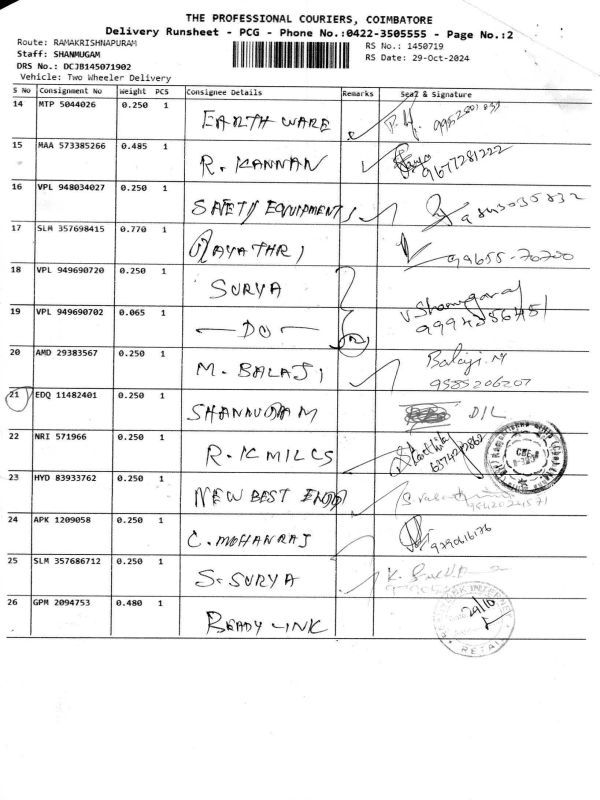 THE PROFESSIONAL COURIERS, COIMBATORE
Delivery Runsheet - PCG - Phone No.:0422-3505555 - Page No.:2
Route: RAMAKRISHNAPURAM
RS No.: 1450719
Staff: SHANMUGAM
RS Date: 29-Oct-2024
DRS No.: DCJB145071902
Vehicle: Two Wheeler Delivery
S No Consignment No Weight PCS Consignee Details Remarks Seal & Signature
14 MTP 5044026 0.250 1 EARTH WARE
15 MAA 573385266 0.485 1 R. KANNAN 9677281222
16 VPL 948034027 0.250 1 SAFETY EQUIPMENTS
17 SLM 357698415 0.770 1 GAYATHRI 99655-70700
18 VPL 949690720 0.250 1 SURYA
19 VPL 949690702 0.065 1 DO
20 AMD 29383567 0.250 1 M. BALAJI Balaji. M
9585206207
21 EDQ 11482401 0.250 1 D/L
22 NRI 571966 0.250 1 R. K MILLS
23 HYD 83933762 0.250 1 NEW BEST
24 APK 1209058 0.250 1 C. MOHANRAJ
25 SLM 357686712 0.250 1 S. SURYA
26 GPM 2094753 0.480 1 READY LINK 29/10